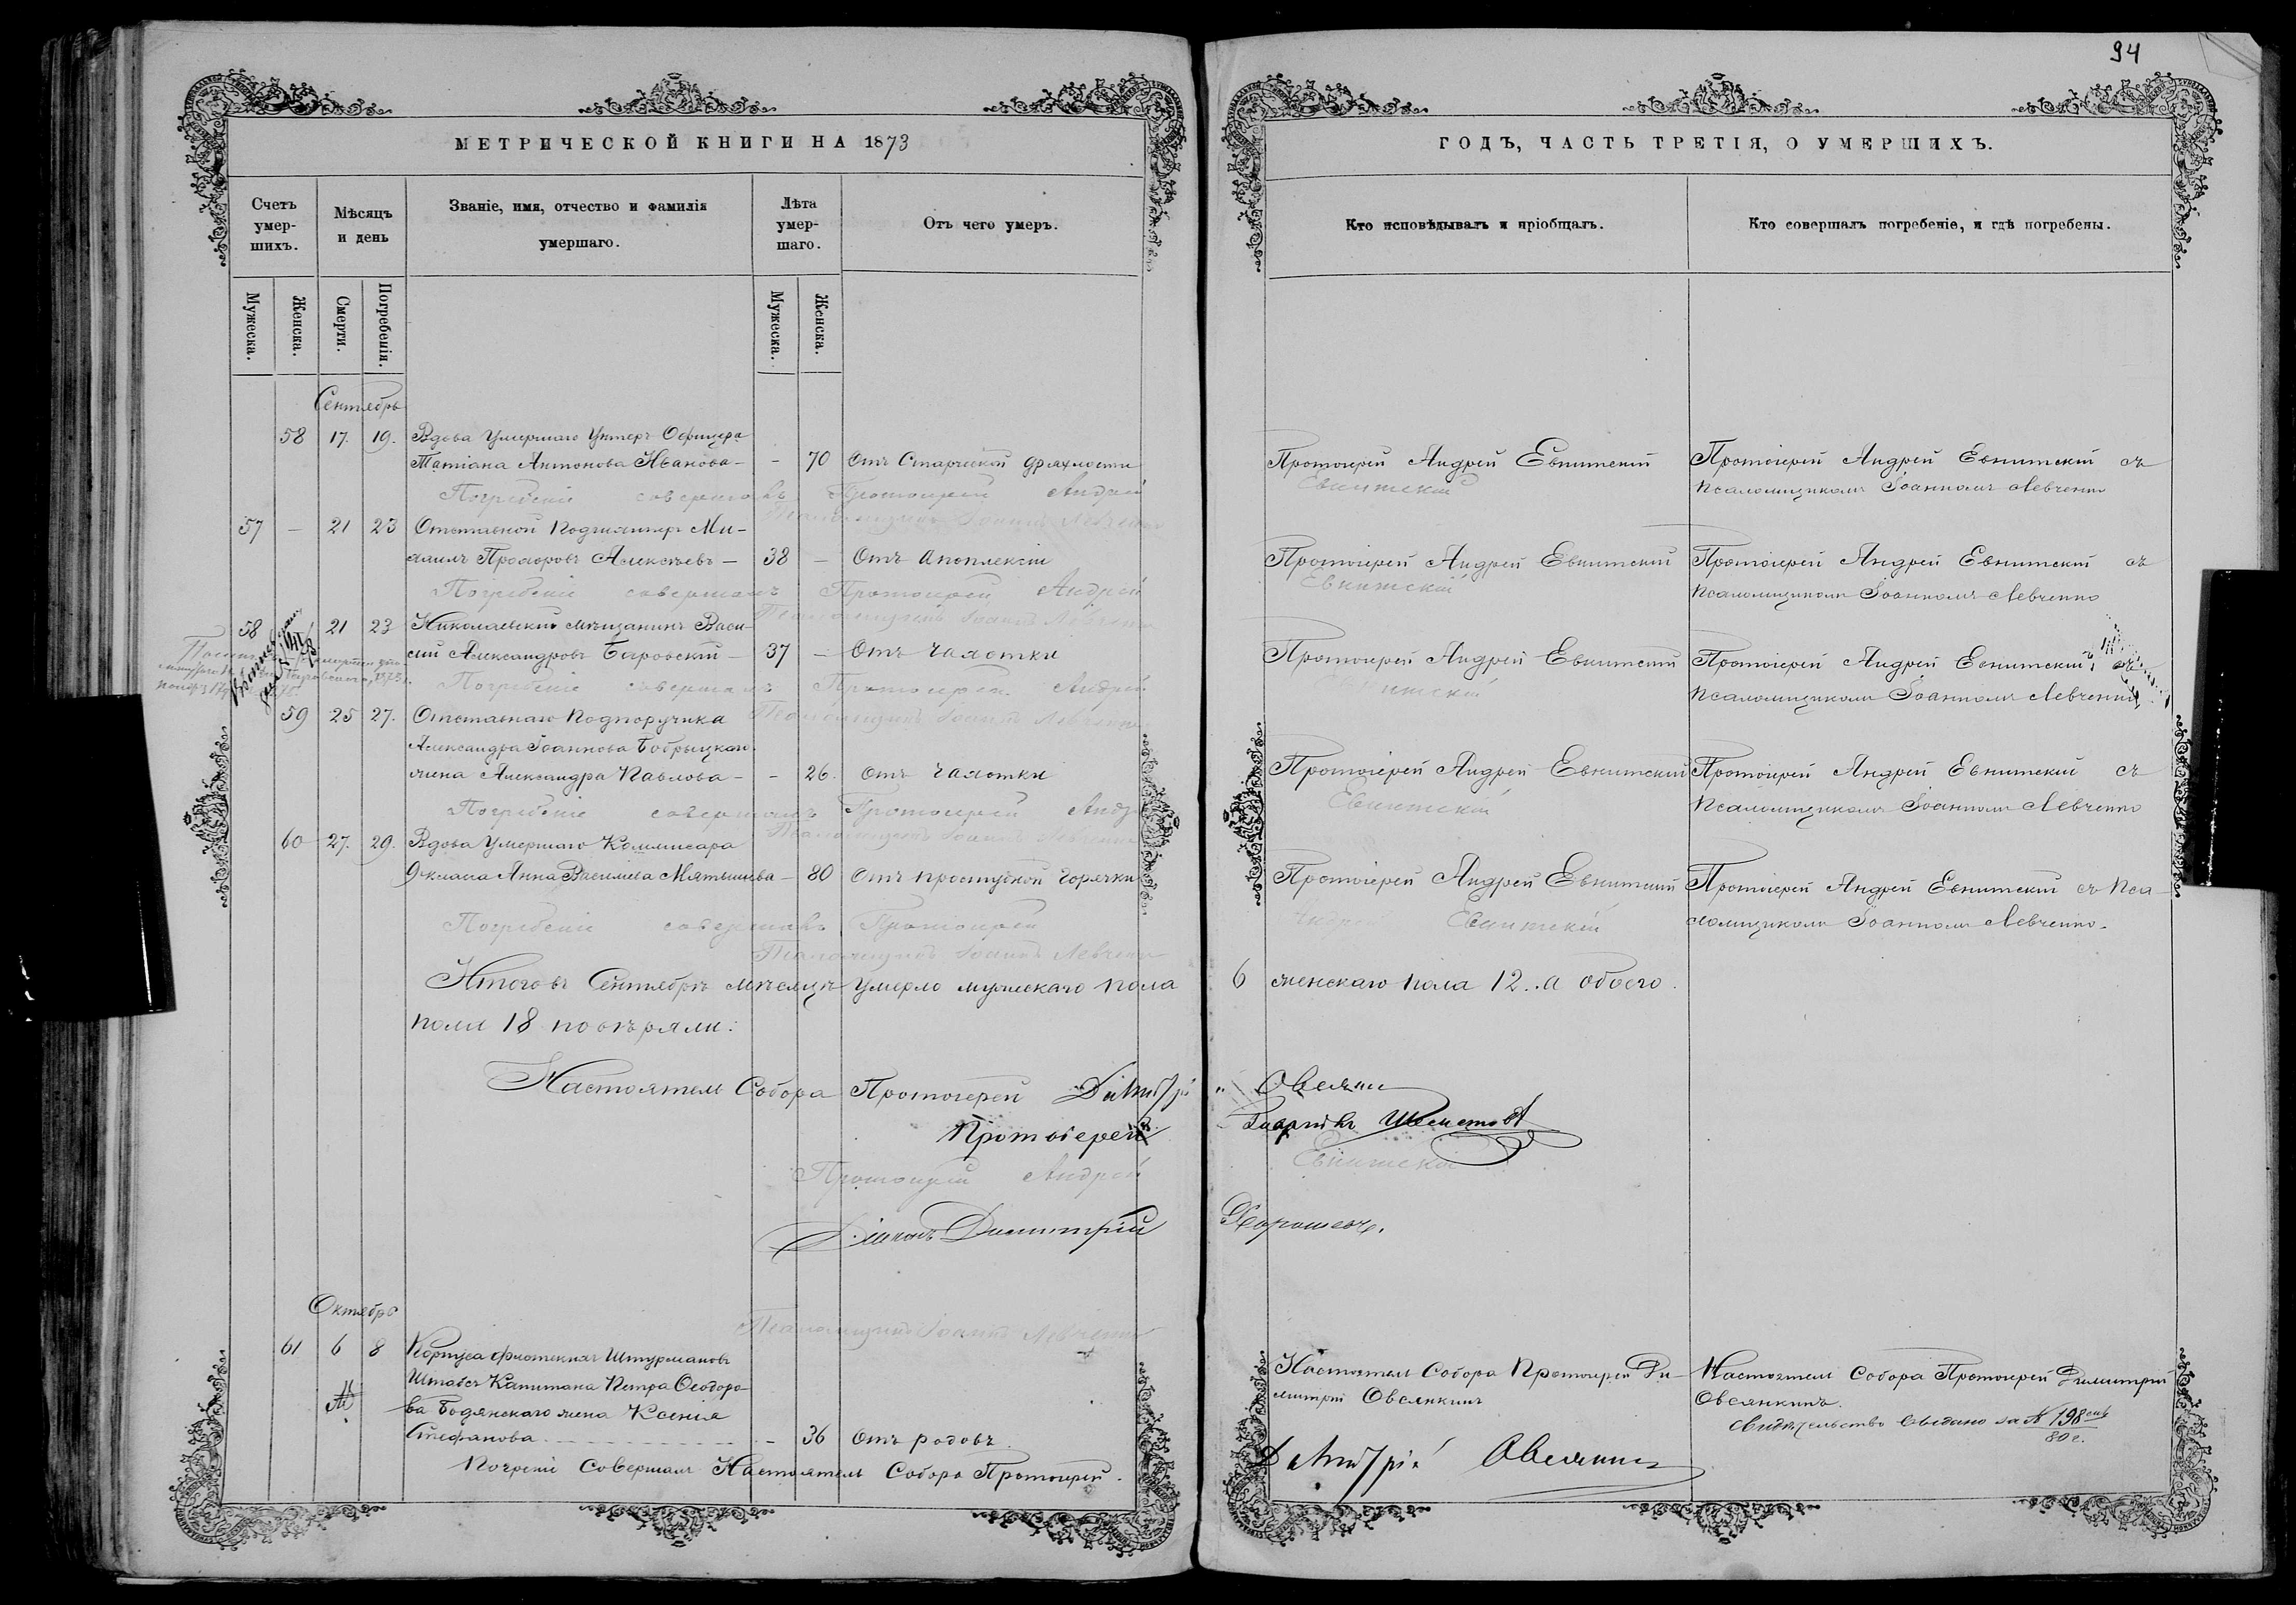 94
МЕТРИЧЕСКОЙ КНИГИ НА 1873
ГОДЪ, ЧАСТЬ ТРЕТІЯ, О УМЕРШИХЪ.
Счетъ умер-шихъ.
Мѣсяцъ и день
Званіе, имя, отчество и фамилія умершаго.
Лѣта умер-шаго.
Отъ чего умеръ.
Кто исповѣдывалъ и пріобщалъ.
Кто совершалъ погребеніе, и гдѣ погребены.
Мужеска.
Женска.
Смерти.
Погребенія.
Мужеска.
Женска.
Сентябрь
58 17. 19. Вдова Умершаго Унтеръ Офицера
Татіана Антонова Иванова - - 70 Отъ Старческой дряхлости
Протоіерей Андрей Евнитскій
Протоіерей Андрей Евнитскій съ
Псаломщикомъ Іоанномъ Левченко
Погребеніе совершалъ Протоіерей Андрей Евнитскій
Псаломщикъ Іоаннъ Левченко
57 - 21 23 Отставной Подшкиперъ Ми-
хаилъ Прохоровъ Алексѣевъ - 38 - Отъ Апоплексіи
Протоіерей Андрей Евнитскій
Протоіерей Андрей Евнитскій съ
Псаломщикомъ Іоанномъ Левченко
Погребеніе совершалъ Протоіерей Андрей Евнитскій
Псаломщикъ Іоаннъ Левченко
58 21 23 Николаевскій мѣщанинъ Васи-
лій Александровъ Боровскій - 37 - Отъ Чахотки
Протоіерей Андрей Евнитскій
Протоіерей Андрей Евнитскій съ
Псаломщикомъ Іоанномъ Левченко
Погребеніе совершалъ Протоіерей Андрей Евнитскій
Псаломщикъ Іоаннъ Левченко
59 25 27. Отставнаго Подпоручика
Александра Іоаннова Бобрыцкаго
жена Александра Павлова - - 26. Отъ Чахотки
Протоіерей Андрей Евнитскій
Протоіерей Андрей Евнитскій съ
Псаломщикомъ Іоанномъ Левченко
Погребеніе совершалъ Протоіерей Андрей Евнитскій
Псаломщикъ Іоаннъ Левченко
60 27. 29. Вдова Умершаго Коммисара
9 класа Анна Василіева Мятышева - 80 Отъ простудной горячки
Протоіерей Андрей Евнитскій
Протоіерей Андрей Евнитскій съ Пса-
ломщикомъ Іоанномъ Левченко.
Погребеніе совершалъ Протоіерей Андрей Евнитскій
Псаломщикъ Іоаннъ Левченко
Итого въ Сентябрѣ мѣсяцѣ умерло мужескаго пола 6 женскаго пола 12. а обоего
пола 18
Настоятель Собора Протоіерей Димитрій Овсянкин
Протоіерей
Протоіерей Андрей Евнитскій
Діаконъ Димитрій
Псаломщикъ Іоаннъ Левченко
Октябрь
61 6 8 Корпуса флотскихъ Штурмановъ
Штабсъ Капитана Петра Ѳеодоро-
ва Бодянскаго жена Ксенія
Стефанова - - 36 Отъ родовъ
Настоятель Собора Протоіерей Ди-
митрій Овсянкинъ
Настоятель Собора Протоіерей Димитрій
Овсянкинъ.
Свидѣтельство выдано за № 198
80 г.
Погребеніе Совершалъ Настоятель Собора Протоіерей Димитрій Овсянкинъ